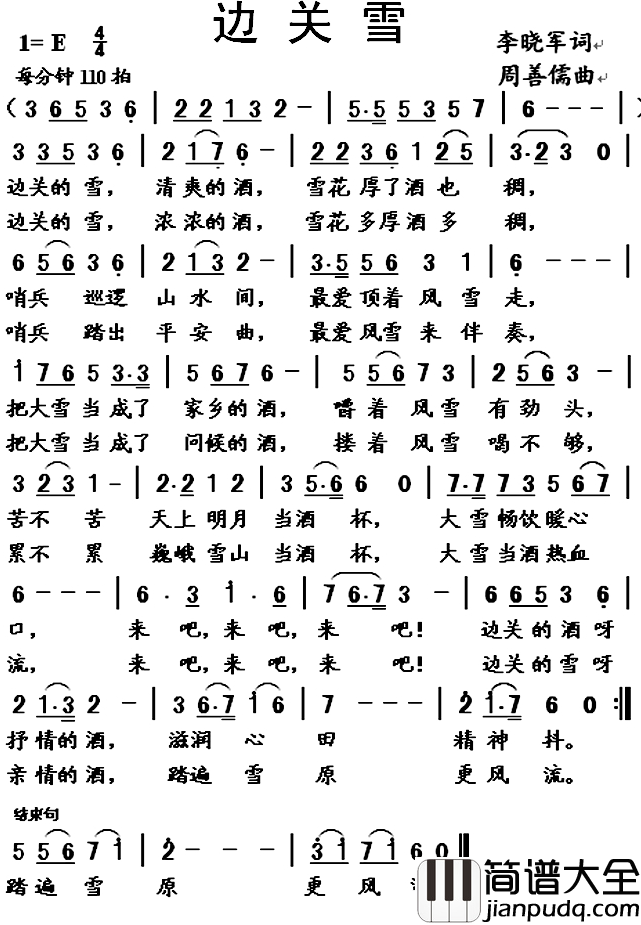 边关雪
1= E 4/4
李晓军词
每分钟110拍
周善儒曲
( 3 6 5 3 6 | 2 2 1 3 2 - | 5·5 5 3 5 7 | 6 - - - | )
3 3 5 3 6 | 2 1 7 6 - | 2 2 3 6 1 2 5 | 3·2 3 0 |
边关的雪， 清爽的酒， 雪花厚了酒也 稠，
边关的雪， 浓浓的酒， 雪花多厚酒多 稠，
6 5 6 3 6 | 2 1 3 2 - | 3·5 5 6 3 1 | 6 - - - |
哨兵 巡逻 山水间， 最爱顶着风雪走，
哨兵 踏出 平安曲， 最爱风雪来伴奏，
1 7 6 5 3·3 | 5 6 7 6 - | 5 5 6 7 3 | 2 5 6 3 - |
把大雪当成了 家乡的酒， 嚼着 风雪 有劲头，
把大雪当成了 问候的酒， 搂着 风雪 喝不够，
3 2 3 1 - | 2·2 1 2 | 3 5·6 6 0 | 7·7 7 3 5 6 7 |
苦不 苦 天上明月 当酒 杯， 大雪畅饮暖心
累不 累 巍峨雪山 当酒 杯， 大雪当酒热血
6 - - - | 6 · 3 1 · 6 | 7 6·7 3 - | 6 6 5 3 6 |
口， 来吧，来吧，来 吧！ 边关的酒呀
流， 来吧，来吧，来 吧！ 边关的雪呀
2 1·3 2 - | 3 6·7 1 6 | 7 - - - | 2 1·7 6 0 :||
抒情的酒， 滋润 心 田 精神 抖。
亲情的酒， 踏遍 雪 原 更风 流。
结束句
5 5 6 7 1 | 2 - - | 3 1 7 1 6 0 ||
踏遍 雪 原 更 风
简谱大全
jianpudq.com